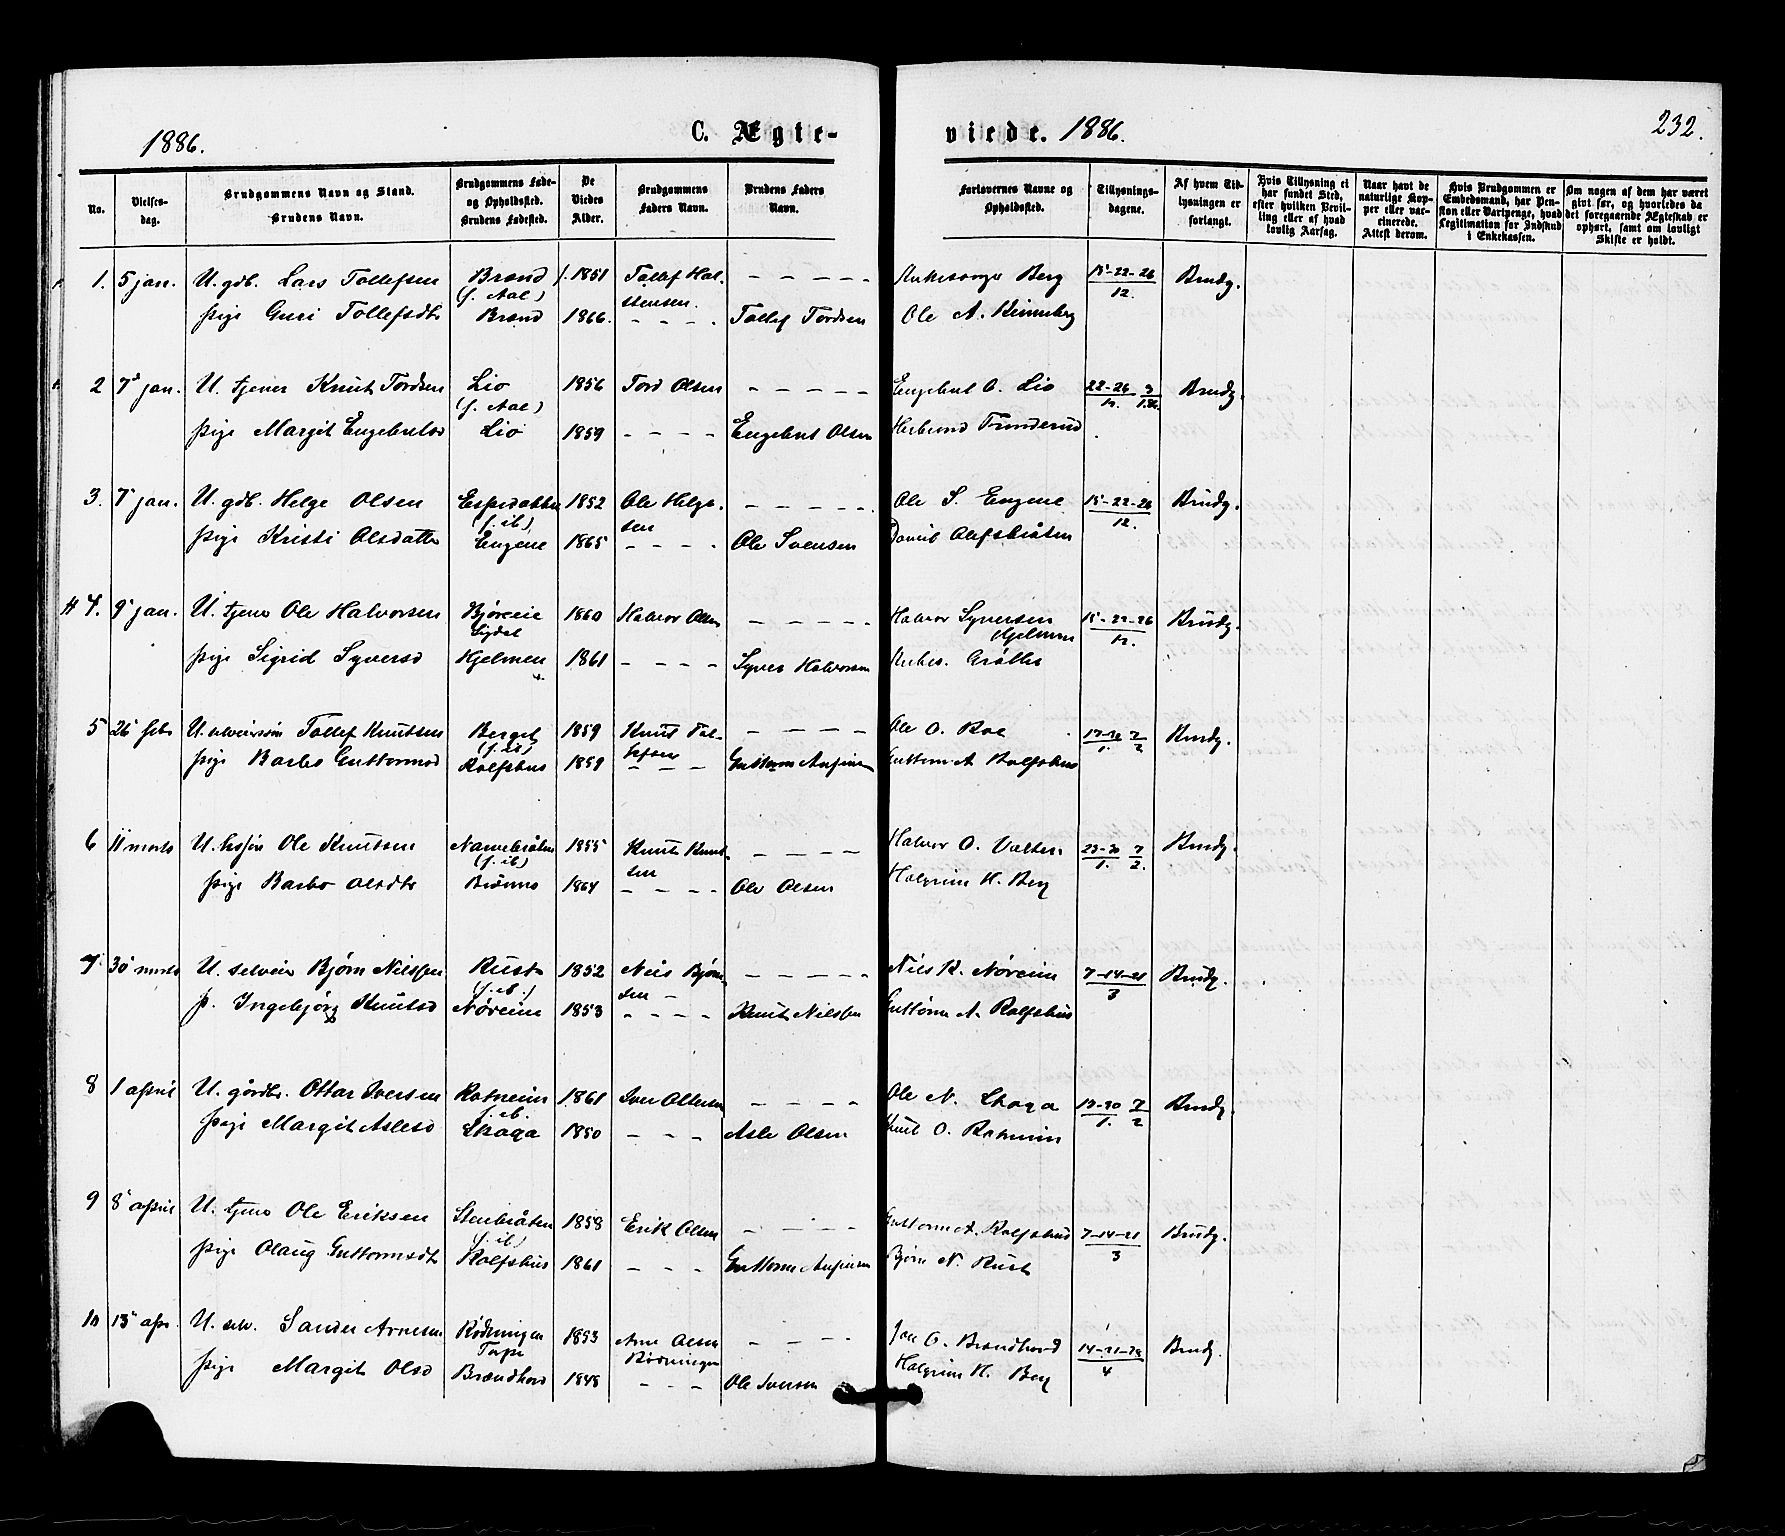 1886.
C. Ægte-
viede. 1886.
232.
No.
Vielses-
dag.
Brudgommens Navn og Stand.
Brudens Navn.
Brudgommens Føde-
og Opholdssted.
Brudens Fødested.
De
Viedes
Alder.
Brudgommens
Faders Navn.
Brudens Faders
Navn.
Forlovernes Navne og
Opholdssted.
Tillysnings-
dagene.
Af hvem Til-
lysningen er
forlangt.
Hvis Tillysning ei
har fundet Sted,
efter hvilken Bevil-
ling eller af hvad
lovlig Aarsag.
Naar havt de
naturlige Kop-
per eller vac-
cinerede.
Attest derom.
Hvis Brudgommen er
Embedsmand, har Pen-
sion eller Vartpenge, hvad
Legitimation for Indskud
i Enkekassen.
Om nogen af dem har været
gift før, og hvorledes da
det foregaaende Ægteskab er
ophørt, samt om lovligt
Skifte er holdt.
1. 5 jan. U. gdb. Lars Tollefsen Brænd 1851 Tollef Hal- - - - - Berg 15-22-26 Brudg.
(f. Aal) stensen. 12.
pige Guri Tollefsdtr Brænd 1866. - - - - Tollef Tordsen Ole A.
2 7 jan. U. tjener Knut Tordsen Lio 1856 Tord Olsen - - - - Engebret O. Lio 22-26 3 Brudg.
(f. Aal) 12. 1.86.
pige Margit Engebretsd Lio 1859 - - - - Engebret Olsen Herbrand
3. 7 jan. U. gdb. Helge Olsen 1852 Ole Helge- - - - - Ole S. Engene 15-22-26 Brudg.
(f. ib) sen 12.
pige Kristi Olsdatter Engene 1865 - - - - Ole Svensen
4. 9 jan. U. tjener Ole Halvorsen Bjøreie 1860 Halvor Olsen - - - - Halvor Syversen 15-22-26 Brudg.
Sigdal Kjelmen 12.
pige Sigrid Syversd Kjelmen 1861 - - - - Syver Halvorsen
5 26 febr Tollef Knutsen Berget 1859 Knut Tol- - - - - Ole O. Roe Brudg.
(f. ib) lefsen
pige Barbo Guttormsd Rolfshus 1859 - - - Guttorm Guttorm A Rolfshus
6 11 marts Ole Knutsen 1855 Knut Knut- - - - - Halvor O. 7 Brudg.
(f. ib) sen 1. 2.
pige Barbo Olsdtr 1864 - - - - Ole Olsen Halgrim H. Berg
7 30 marts U. selveier Bjørn Nilssen Rust 1852 Nils Bjørn- - - - - Nils K. Nøreim 7-14-21 Brudg.
(f. ib.) sen 3
p. Ingebjørg Knutsd Nøreim 1853 - - - - Knut Nilssen Guttorm A. Rolfshus
8 1 april U. gårdbr. Ottar Iversen 1861 Iver Ottersen - - - - Ole N. Skaga 7 Brudg.
f. ib. 1. 2
pige Margit Aslesd Skaga 1850 - - - Asle Olsen Knut O.
9 8 april U. tjener Ole Eriksen Stenbråten 1858 Erik Olsen - - - Guttorm A. Rolfshus 7-14-21 Brudg.
(f. ib) 3
pige Olaug Guttormsdtr Rolfshus 1861 - - - Guttorm Bjørn N. Rust
10 15 apr. U. selv. Sander Arnesen Rødningen 1853 Arne Olsen - - - Jon O. Brændhovd Brudg.
Torpe Rødningen 4
pige Margit Olsd Brændhovd 1848 - - - Ole Iversen Halgrim H. Berg